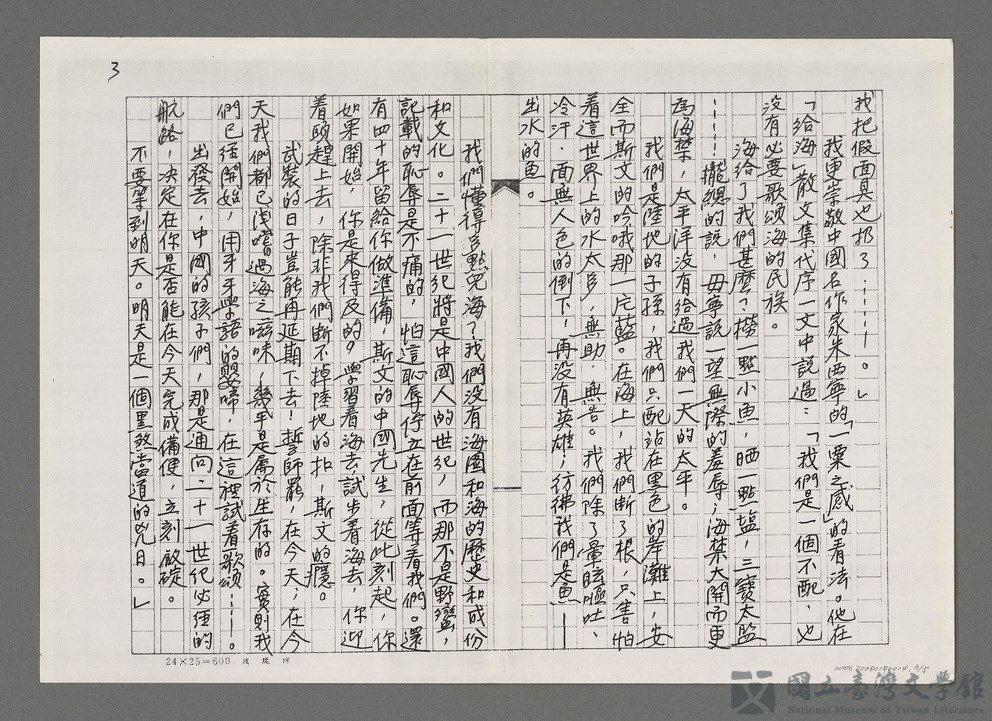 3
我把假面具也扔了………。」
我更崇敬中國名作家朱西寧的「一粟之感」的看法。他在
「給海」散文集代序一文中說過：「我們是一個不配、也
沒有必要歌頌海的民族。
海給了我們甚麼？撈一點小魚，晒一點塩，三寶太監
……攏總的說，毋寧說一望無際的羞辱；海禁大開而更
為海禁，太平洋沒有給過我們一天的太平。
我們是陸地的子孫，我們只配站在黑色的岸灘上，安
全而斯文的吟哦那一片藍。在海上，我們斷了根，只害怕
着這世界上的水太多，無助、無告。我們除了暈眩嘔吐、
冷汗、面無人色的倒下，再沒有英雄；彷彿我們是魚——
出水的魚。
我們懂得多點兒海？我們沒有海圖和海的歷史和成份
和文化。二十一世紀將是中國人的世紀，而那不是野蠻，
記載的恥辱是不痛的，怕這恥辱佇立在前面等着我們。還
有四十年留給你做準備，斯文的中國先生，從此刻起，你
如果開始，你是來得及的？學習着海去，試步着海去，你迎
着頤趕上去，除非我們斷不掉陸地的根，斯文的癮。
武裝的日子豈能再延期下去！誓師罷，在今天；在今
天我們都已淺嚐過海之嗞味，幾乎是屬於生存的。實則我
們已經開始，用牙牙學語的嬰啼，在這裡試着歌頌……。
出發去，中國的孩子們，那是通向二十一世紀必經的
航路，決定在你是否能在今天完成備便，立刻啟碇。
不要等到明天。明天是一個黑煞當道的兇日。」
24×25=600 玫瑰牌
NMTL20080180014, 3/5
國立臺灣文學館
National Museum of Taiwan Literature